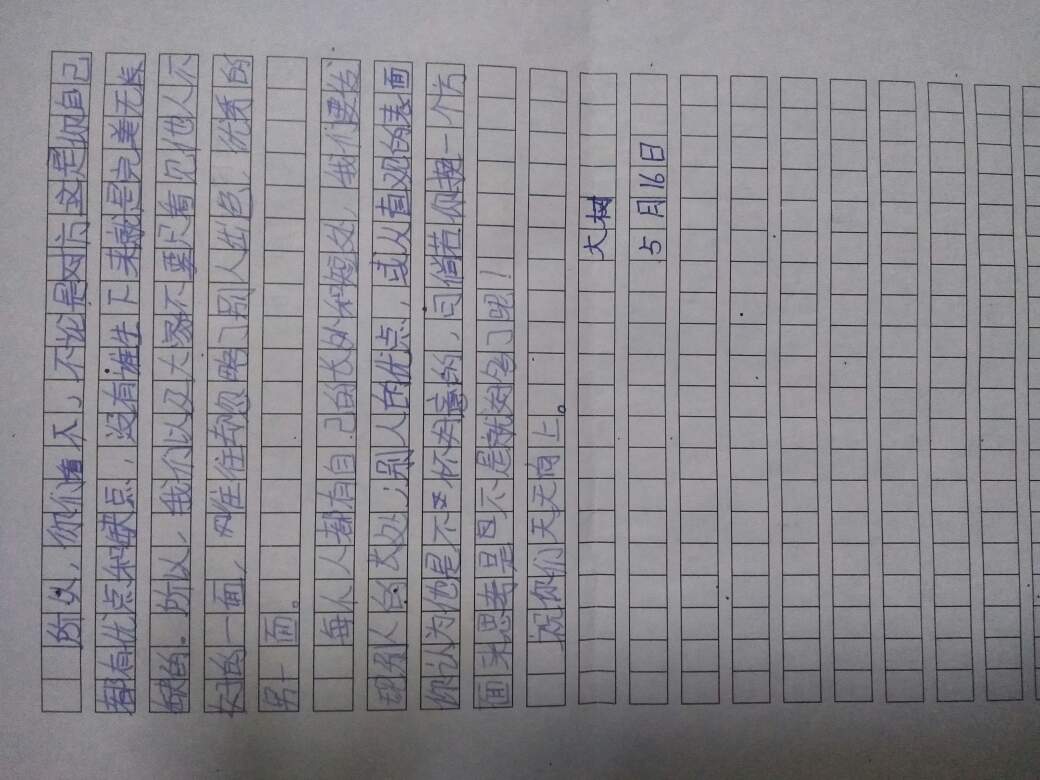 所以，你们看不，不论是对方这是你自己
都有优点和缺点，没有谁生下来就是完美无
缺的。所以，我们以及大家不要只看见他人不
好的一面，却往往忽略了别人出色、优秀的
另一面。
每人人都有自己的长处和短处，我们要
别人的长处；别人的优点，或以直观的表面
你认为他是不怀好意的，问倘若你换一个方
面来思考是
祝你们天天向上。
大树
5月16日